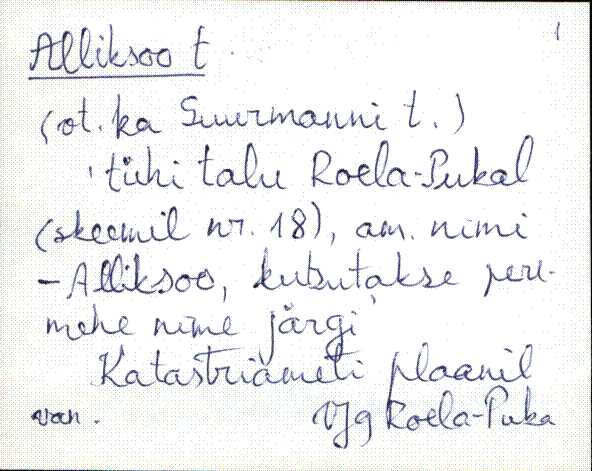 1
Alliksoo t
(ot. ka Suurmanni t.)
tühi talu Roela-Pukal
(skeemil nr. 18), am. nimi
- Alliksoo, kutsutakse pere-
mehe nime järgi
Katastriameti plaanil
van. Vjg Roela-Puka